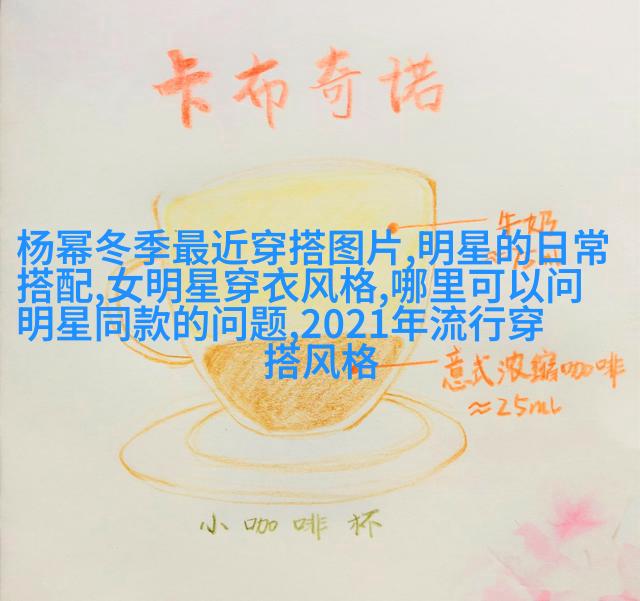 卡布奇诺
牛奶
杨幂冬季最近穿搭图片,明星的日常
搭配,女明星穿衣风格,哪里可以问
明星同款的问题,2021年流行穿
搭风格
意式浓缩咖啡
≈25mL
小咖啡杯